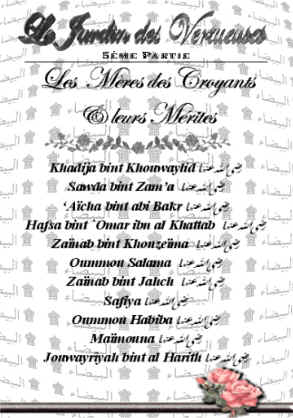 Le Jardin des Vertueuses
5ÈME PARTIE
Les Mères des Croyants
& leurs Mérites
Khadija bint Khouwaylid رضي الله عنها
Sawda bint Zam'a رضي الله عنها
'Aïcha bint abi Bakr رضي الله عنها
Hafsa bint `Omar ibn al Khattab رضي الله عنها
Zaïnab bint Khouzeïma رضي الله عنها
Oummou Salama رضي الله عنها
Zaïnab bint Jahch رضي الله عنها
Safiya رضي الله عنها
Oummou Habiba رضي الله عنها
Maïmouna رضي الله عنها
Jouwayriyah bint al Harith رضي الله عنها